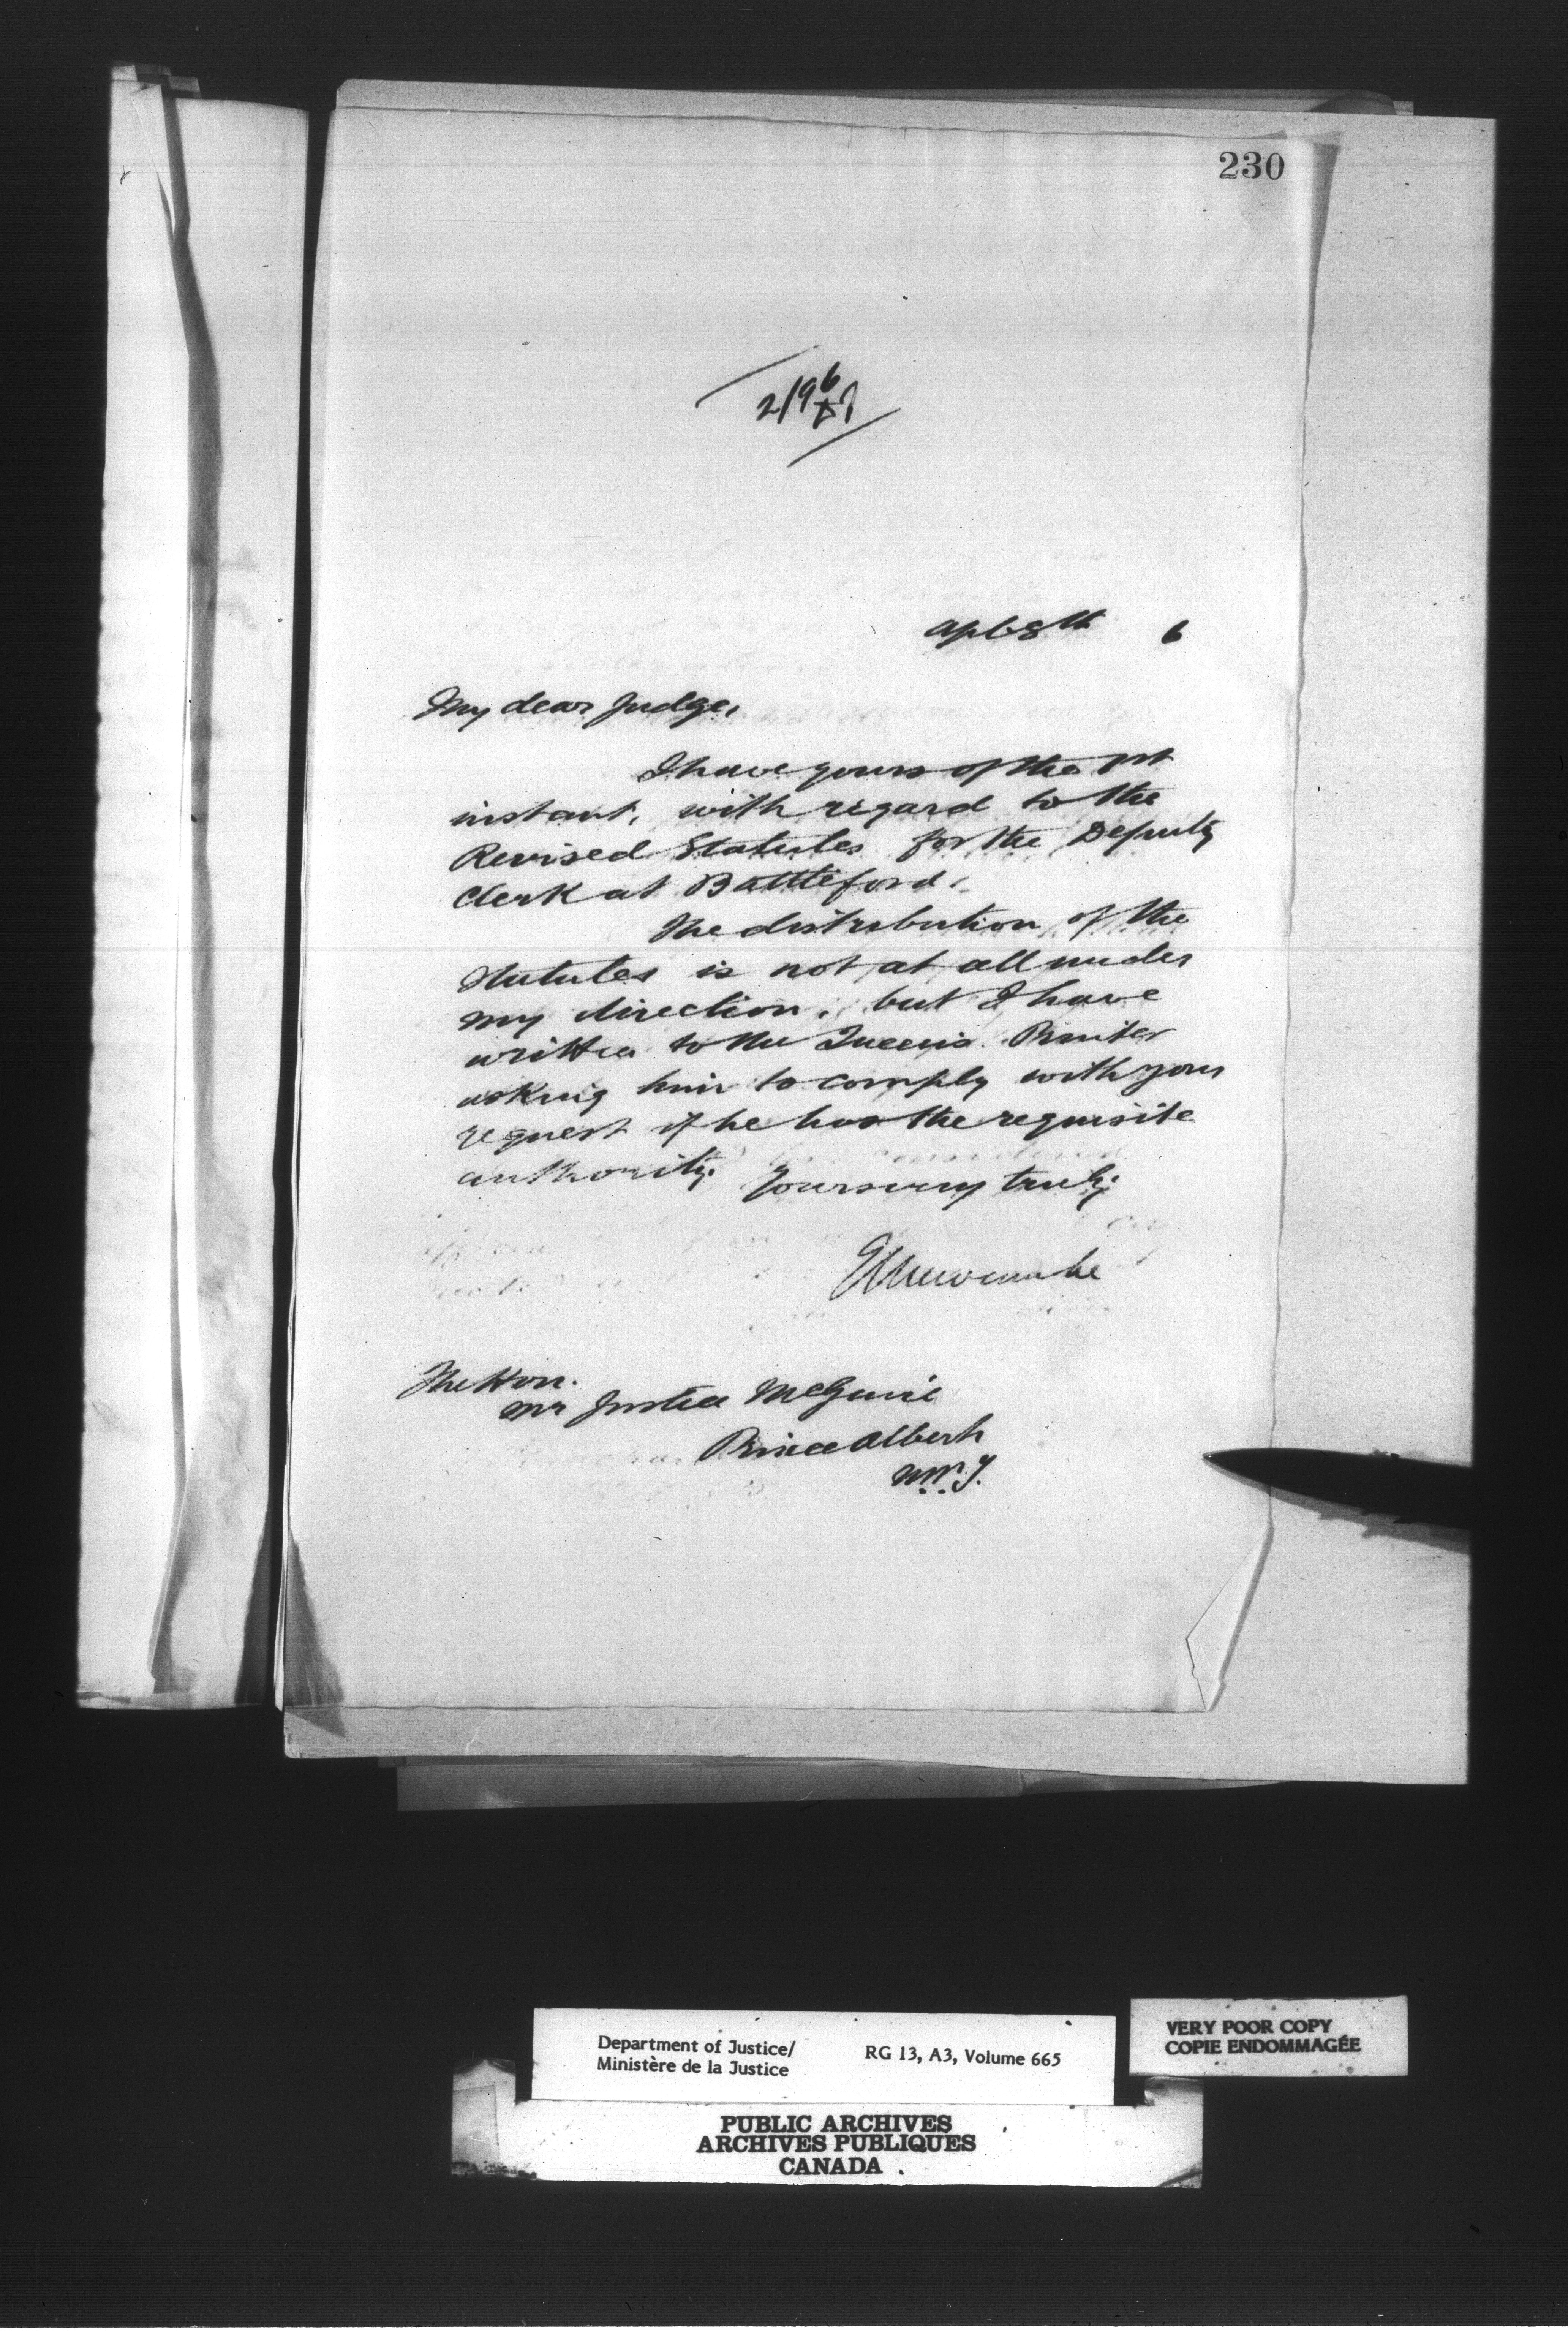 230
Apl 8th 6
My dear Judge,
I have yours of the 1st
instant, with regard to the
Revised Statutes for the Deputy
Clerk at Battleford.
The distribution of the
Statutes is not at all under
my direction, but I have
written to the Queen's Printer
asking him to comply with your
request if he has the requisite
authority.
Yours very truly,
E L Newcombe
The Hon.
Mr Justice McGuire
Prince Albert
N.W.T.
Department of Justice/
Ministère de la Justice
RG 13, A3, Volume 665
VERY POOR COPY
COPIE ENDOMMAGÉE
PUBLIC ARCHIVES
ARCHIVES PUBLIQUES
CANADA